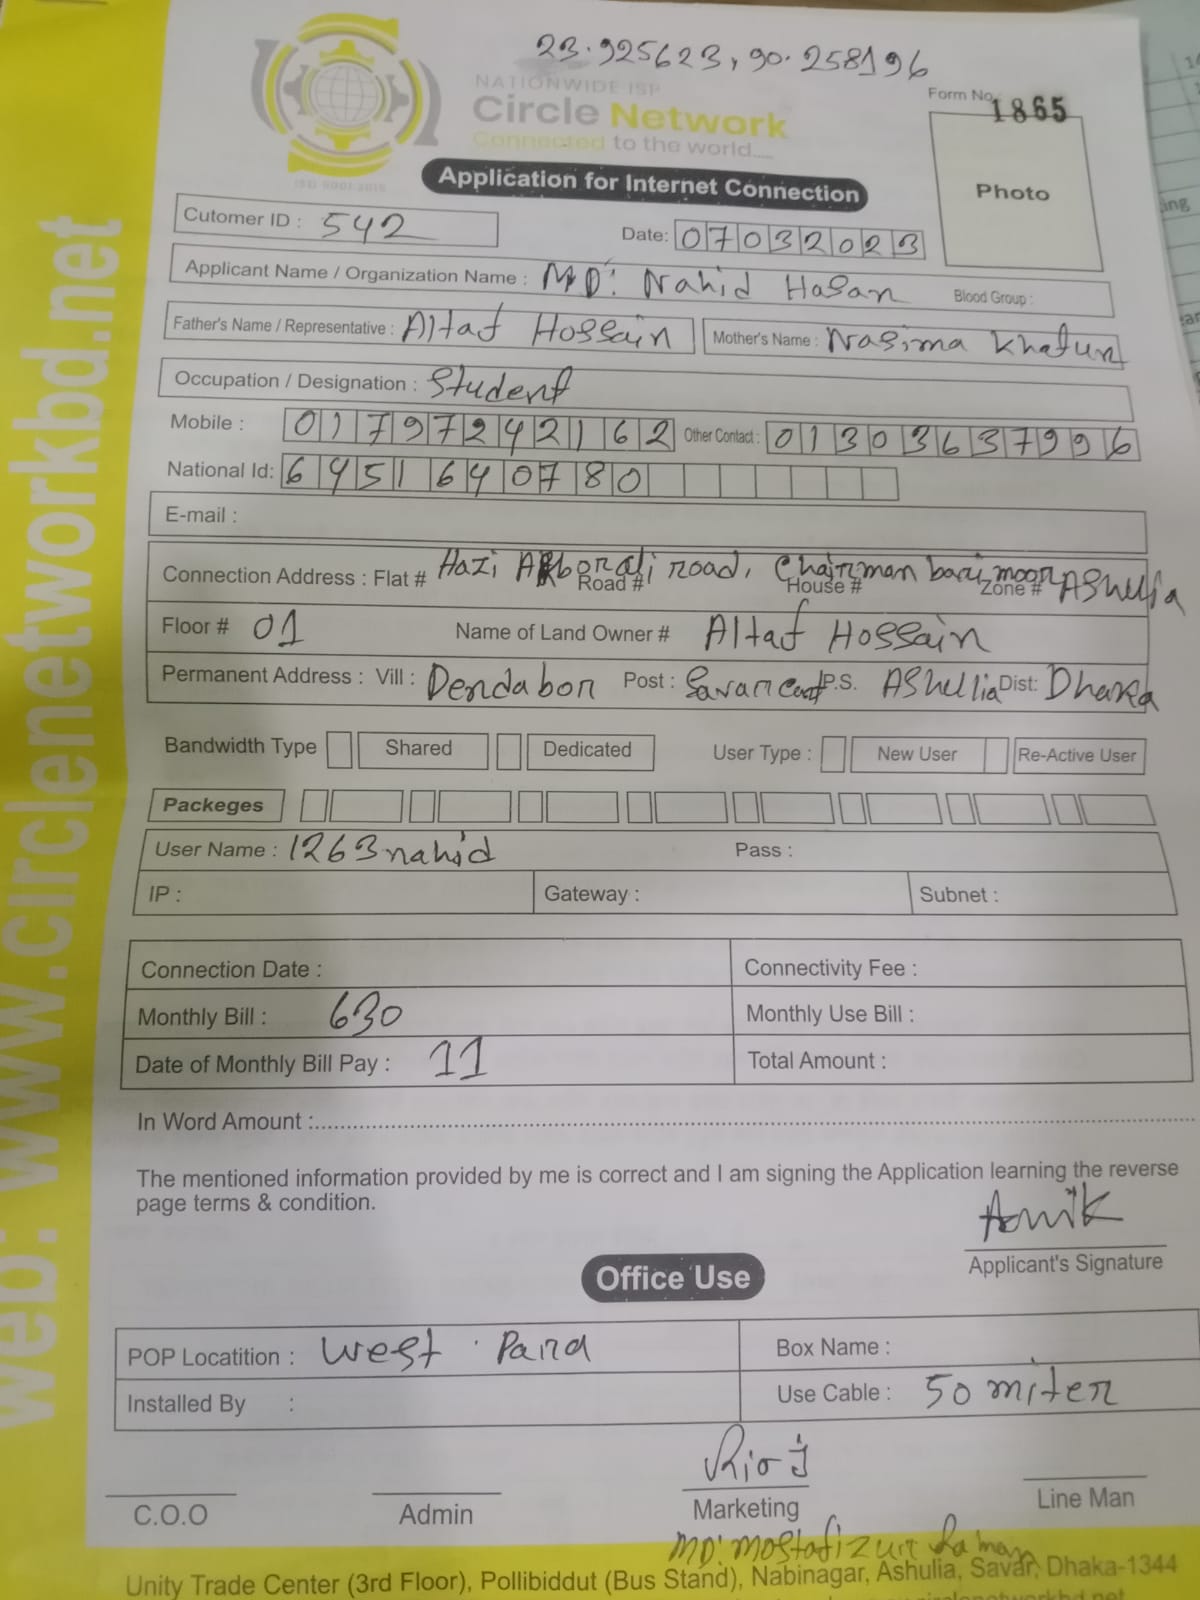 23.925623, 90.258196
NATIONWIDE ISP
Circle Network
Connected to the world....
ISO 9001:2015
Form No. 1865
Photo
Application for Internet Connection
Cutomer ID : 542
Date: 07032023
Applicant Name / Organization Name : MD: Nahid Hasan Blood Group :
Father's Name / Representative : Altaf Hossain Mother's Name : Nasima Khatun
Occupation / Designation : Student
Mobile : 01797242162 Other Contact : 01303637996
National Id: 6451640780
E-mail :
Connection Address : Flat # Hazi Akborali road, Chairman bari moor Ashulia
Road # House # Zone #
Floor # 01 Name of Land Owner # Altaf Hossain
Permanent Address : Vill : Dendabor Post : Savar Cant P.S. Ashullia Dist: Dhaka
Bandwidth Type Shared Dedicated User Type : New User Re-Active User
Packeges
User Name : 1263nahid Pass :
IP : Gateway : Subnet :
Connection Date : Connectivity Fee :
Monthly Bill : 630 Monthly Use Bill :
Date of Monthly Bill Pay : 11 Total Amount :
In Word Amount :
The mentioned information provided by me is correct and I am signing the Application learning the reverse
page terms & condition.
Anik
Applicant's Signature
Office Use
POP Locatition : west Para Box Name :
Installed By : Use Cable : 50 miter
C.O.O Admin Marketing Line Man
MD: Mostafizur Rahman
Unity Trade Center (3rd Floor), Pollibiddut (Bus Stand), Nabinagar, Ashulia, Savar, Dhaka-1344
web: www.circlenetworkbd.net